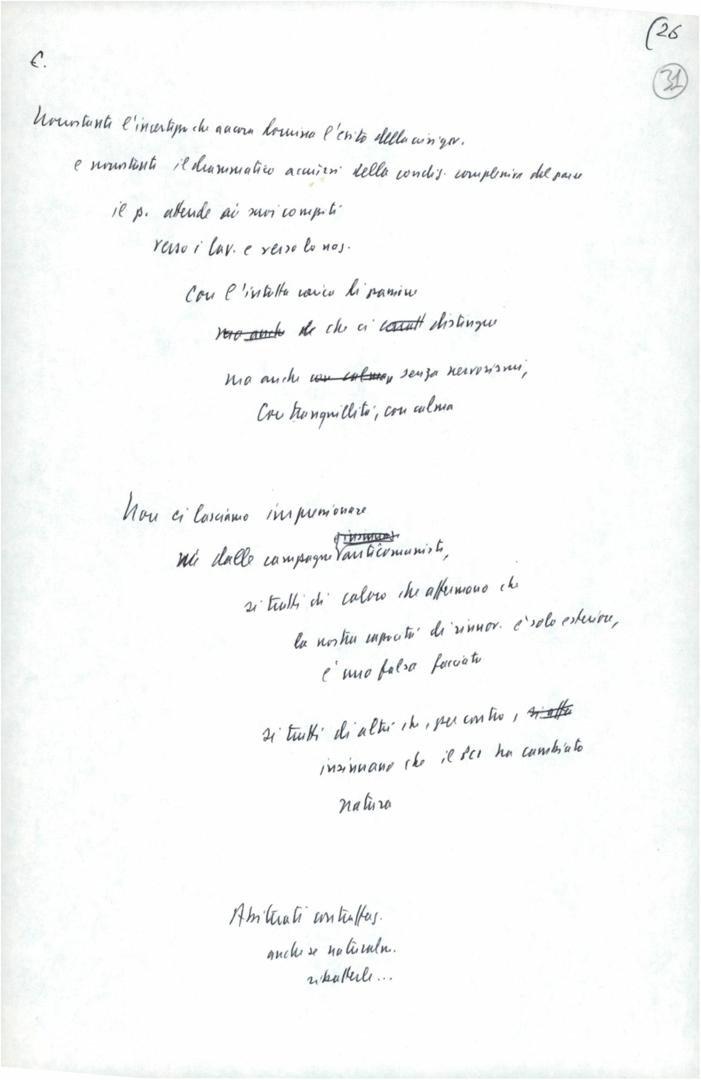 (26
31
E.
Nonostante l'incertezza che ancora domina l'esito della crisi gov.
e nonostante il drammatico acuirsi della condiz. complessiva del paese
il p. attende ai suoi compiti
verso i lav. e verso lo naz.
Con l'intatta carica di
ma anche de che ci caratt distingue
ma anche con calma, senza nervosismi,
Con tranquillità, con calma
Non ci lasciamo impressionare
nè dalle campagne anticomuniste,
si tratti di coloro che affermano che
la nostra capacità di rinnov. è solo esteriore,
è una falsa facciata
si tratti di altri che, per contro, si affa
insinuano che il PCI ha cambiato
natura
Abituati
anche se naturalm.
ribatterle...